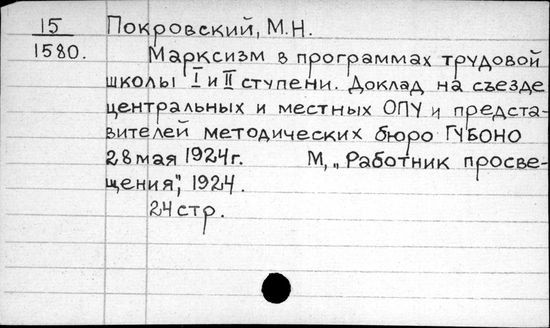 15 Покровский, М.Н.
1580. Марксизм в программах трудовой
школы I и II ступени. Доклад на съезде
центральных и местных ОПУ и предста-
вителей методических бюро ГУБОНО
28 мая 1924 г. М, „Работник просве-
щения", 1924.
24 стр.